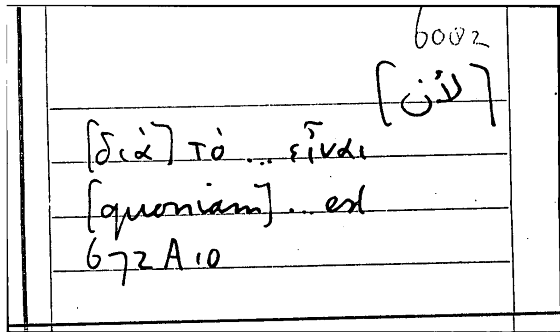 6002
[لأن]
[διὰ] τὸ ... εἶναι
[quoniam] ... est
672 A 10